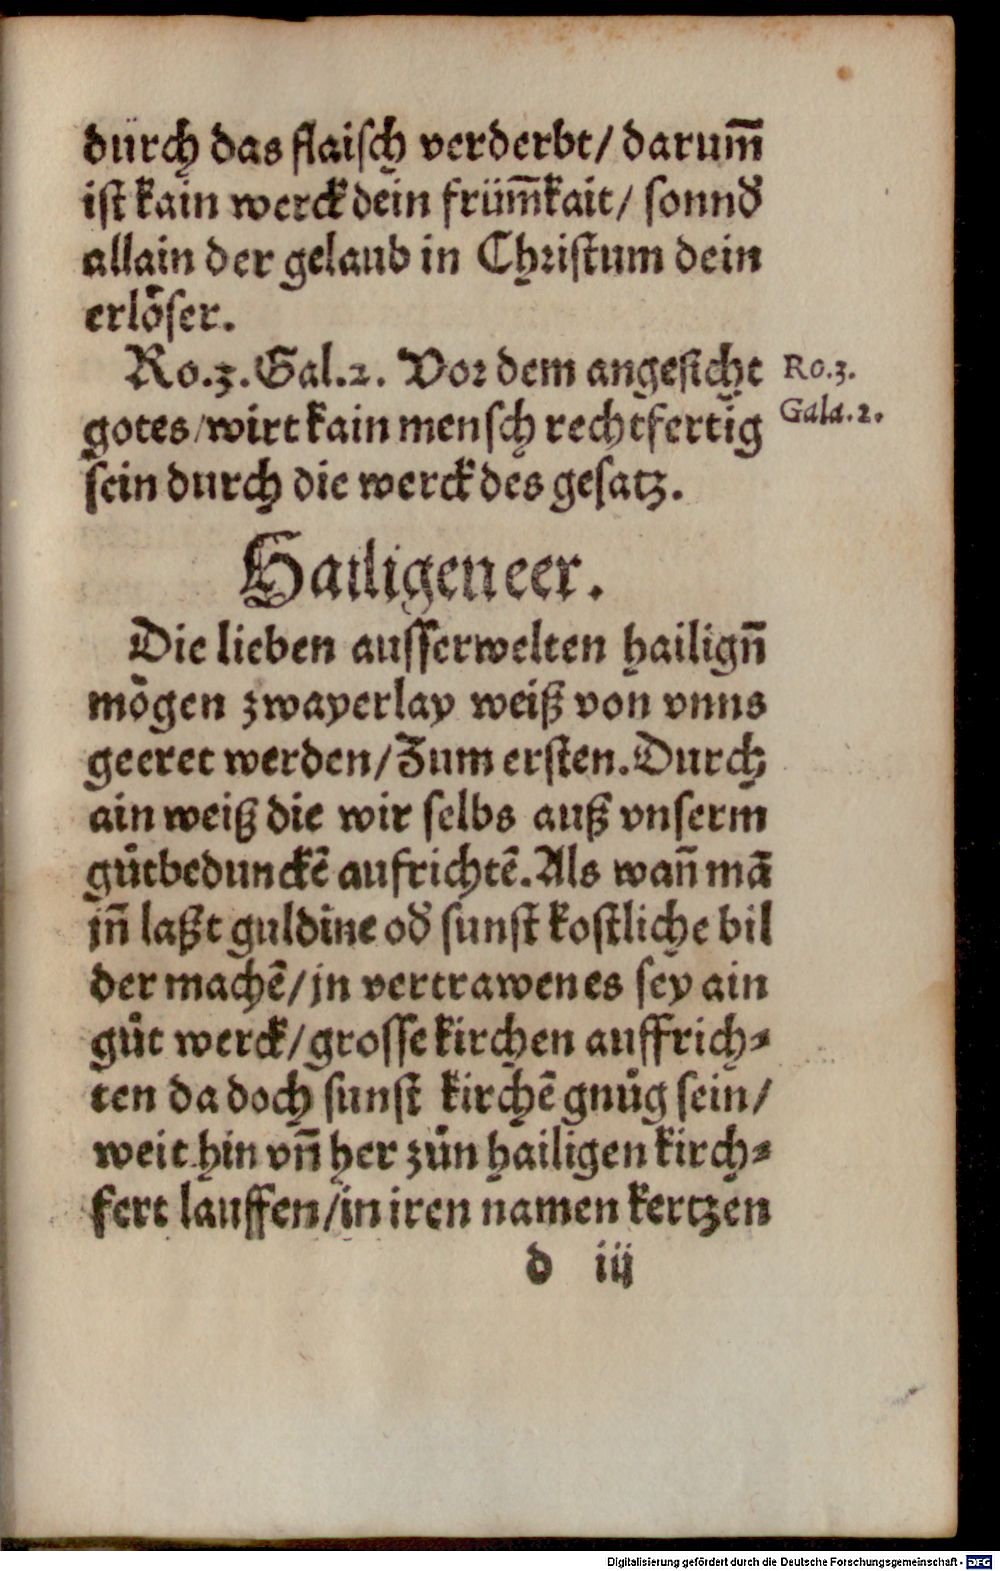 durch das flaisch verderbt/ darum̃
ist kain werck dein früm̃kait/ sonnd̕
allain der gelaub in Christum dein
erlöser.
Ro.3. Gal.2. Vor dem angesicht
gotes/wirt kain mensch rechtfertig
sein durch die werck des gesatz.
Ro.3.
Gala.2.
Hailigen eer.
Die lieben ausserwelten hailigñ
mögen zwayerlay weiß von vnns
geeret werden/ Zum ersten. Durch
ain weiß die wir selbs auß vnserm
gůtbedunckẽ aufrichtẽ. Als wañ mã
jñ laßt guldine od̕ sunst kostliche bil
der machẽ/ jn vertrawen es sey ain
gůt werck/ grosse kirchen auffrich⸗
ten da doch sunst kirchẽ gnůg sein/
weit hin vñ her zůn hailigen kirch⸗
fert lauffen/ in iren namen kertzen
d iij
Digitalisierung gefördert durch die Deutsche Forschungsgemeinschaft - DFG